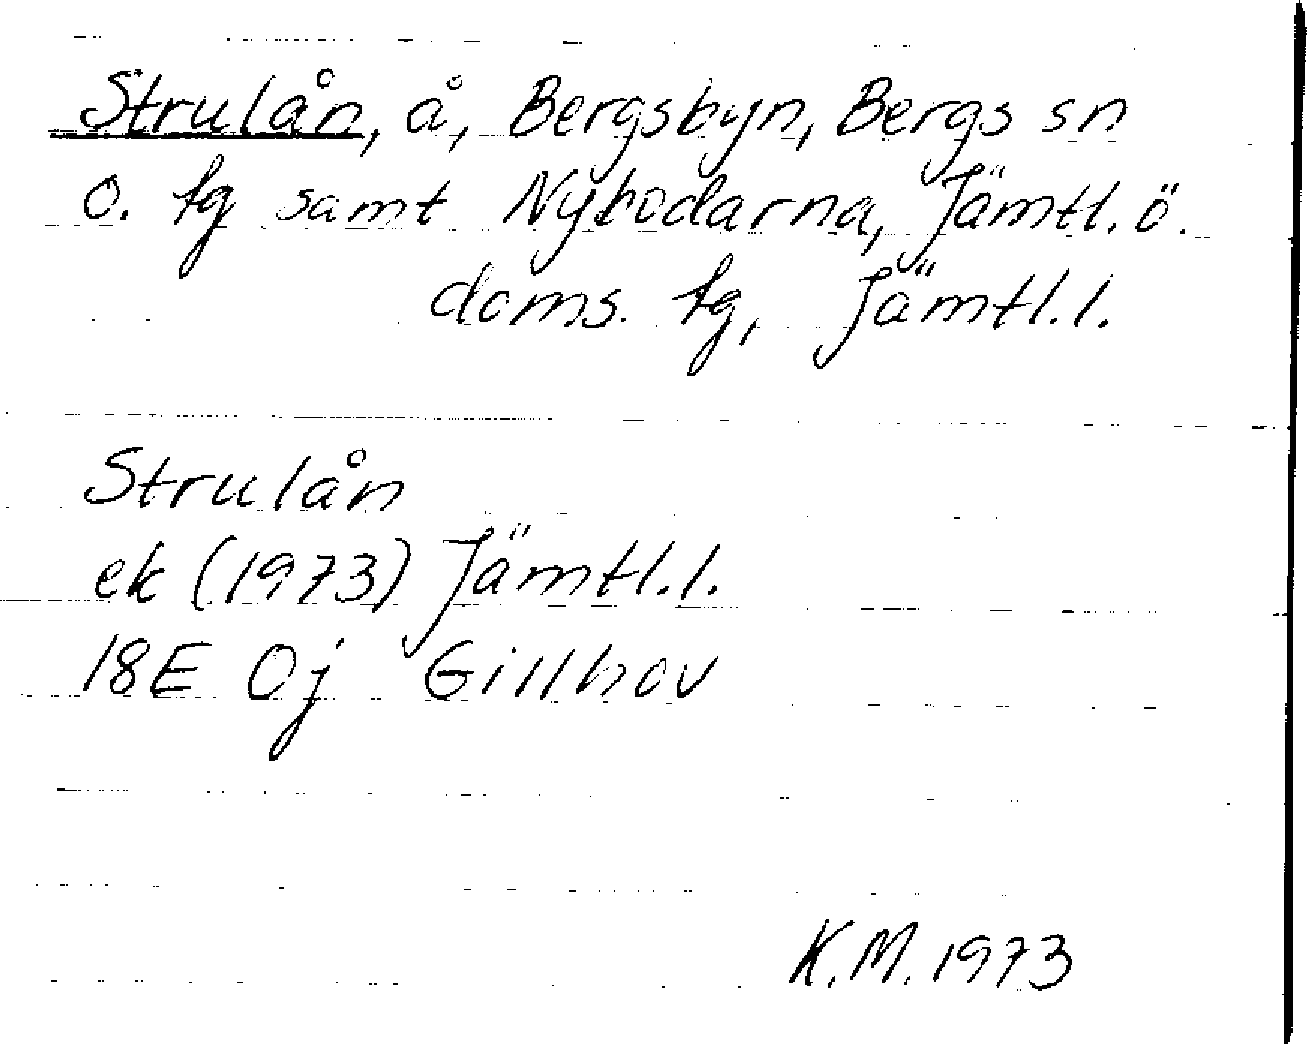 Strulån, å, Bergsbyn, Bergs sn
o. tg samt Nybodarna, Jämtl. ö.
doms. tg, Jämtl.l.
Strulån
ek (1973) Jämtl.l.
18E 0j Gillhov
K.M. 1973